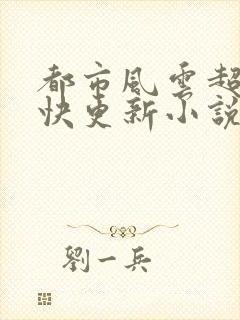 都市風雲超
快更新小說
劉一兵